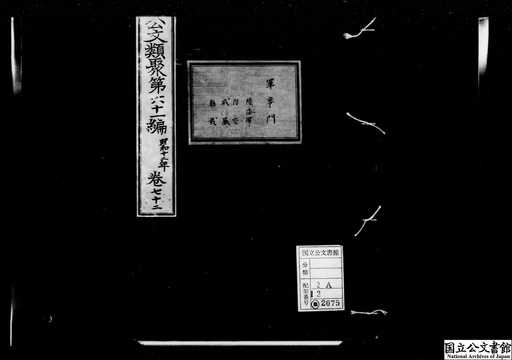 公文類聚第六十一編 昭和十二年 巻七十二
軍事門
陸海軍
防空
武器
雑載
国立公文書館
分類
配架番号
2A
12
2075
国立公文書館
National Archives of Japan